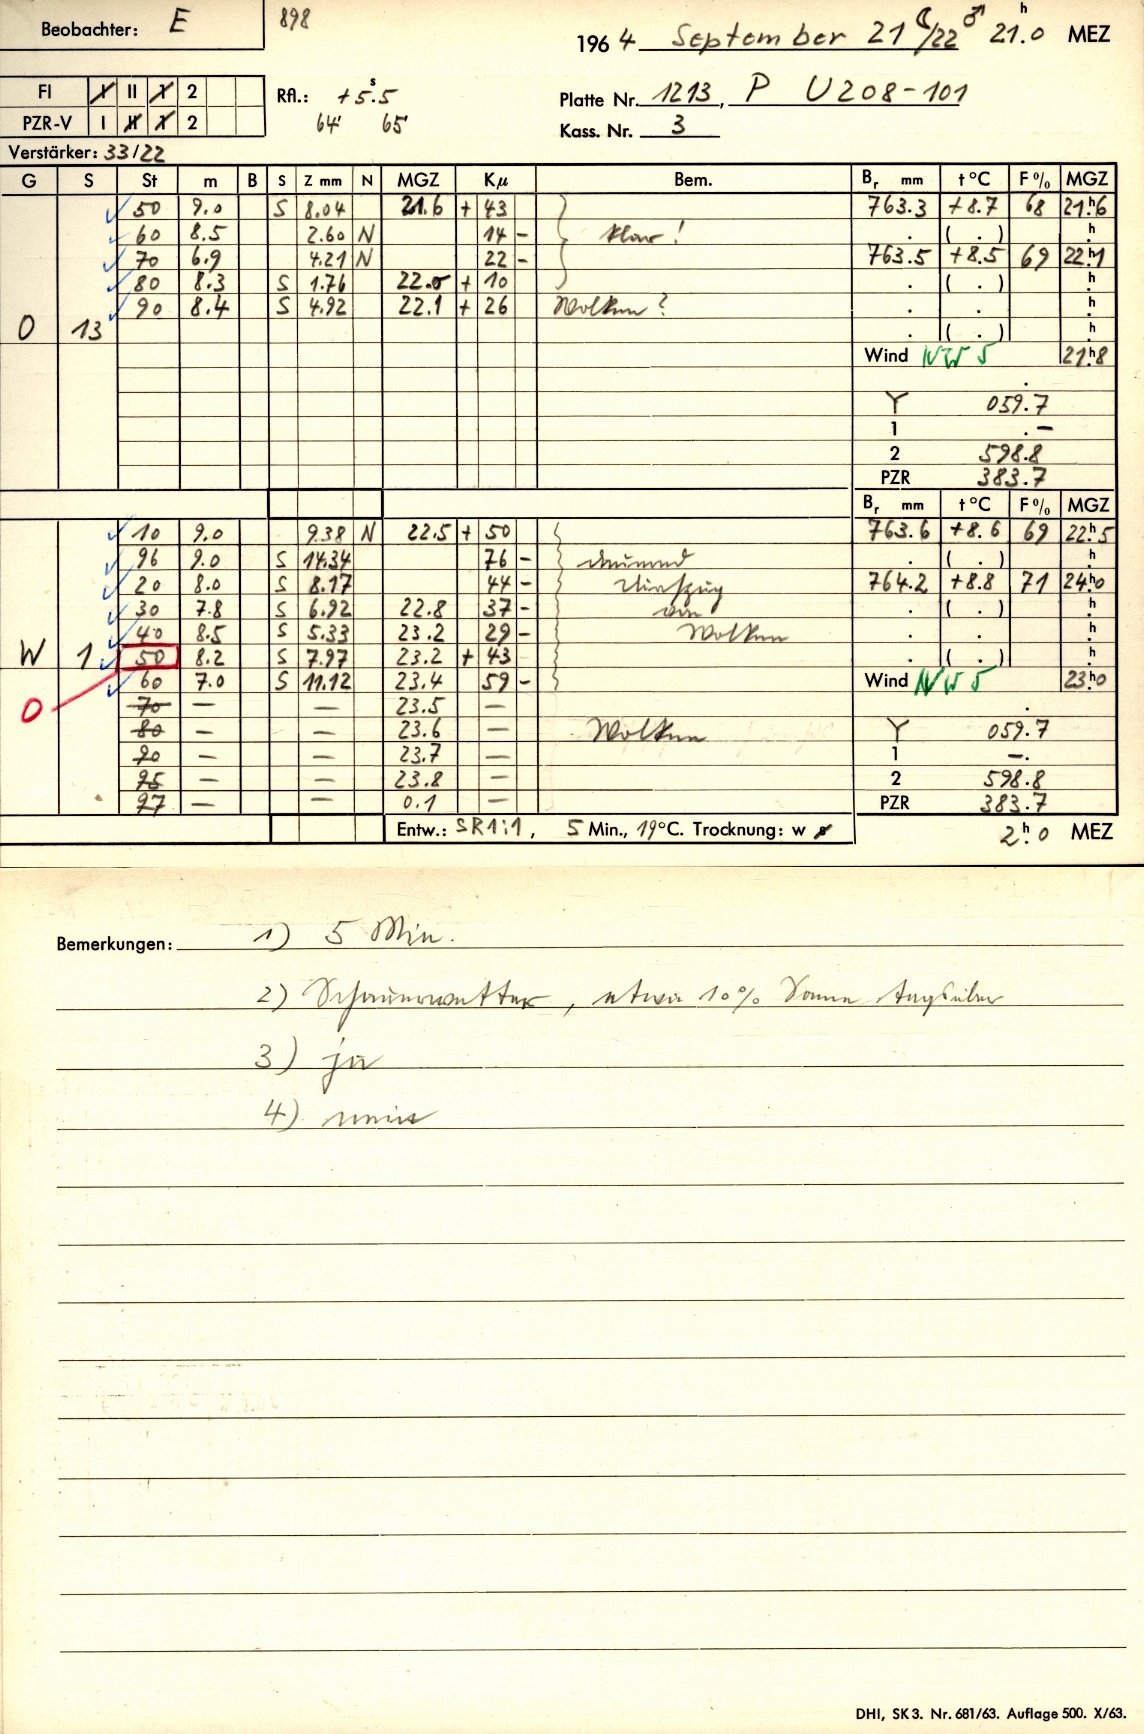 Beobachter: E 898
1964 September 21 ☾/22 ♂ 21.h0 MEZ
FI I II 1 2 Rfl.: +5.s5 Platte Nr. 1213, P U208-101
PZR-V I II 1 2 64' 65' Kass. Nr. 3
Verstärker: 33/22
G S St m B S Z mm N MGZ Kμ Bem. Br mm t °C F % MGZ
50 9.0 S 8.04 21.6 + 43 763.3 +8.7 68 21.h6
60 8.5 2.60 N 14 - klar! . ( . ) h.
70 6.9 4.21 N 22 - 763.5 +8.5 69 22.h1
80 8.3 S 1.76 22.0 + 10 . ( . ) h.
90 8.4 S 4.92 22.1 + 26 Wolken? . . h.
O 13 . ( . ) h.
Wind NW 5 21.h8
.
Y 059.7
1 . -
2 598.8
PZR 383.7
Br mm t °C F % MGZ
10 9.0 9.38 N 22.5 + 50 763.6 +8.6 69 22.h5
96 9.0 S 14.34 76 - dauernd . ( . ) h.
20 8.0 S 8.17 44 - Durchzug 764.2 +8.8 71 24.h0
30 7.8 S 6.92 22.8 37 - von . ( . ) h.
40 8.5 S 5.33 23.2 29 - Wolken . . h.
W 1 50 8.2 S 7.97 23.2 + 43 . ( . ) h.
60 7.0 S 11.12 23.4 59 - Wind NW 5 23.h0
O 70 — — 23.5 — .
80 — — 23.6 — Wolken Y 059.7
90 — — 23.7 — 1 —.
95 — — 23.8 — 2 598.8
97 — — 0.1 — PZR 383.7
Entw.: SR1:1, 5 Min., 19°C. Trocknung: w s 2.h0 MEZ
Bemerkungen: 1) 5 Min.
2) Schauerwetter, etwa 10% Sonne tagsüber
3) ja
4) nein
DHI, SK 3. Nr. 681/63. Auflage 500. X/63.